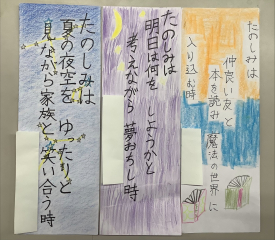 たのしみは
仲良い友と
本を読み魔法の世界に
入り込む時
たのしみは
明日は何をしようかと
考えながら夢おちし時
たのしみは
夏の夜空をゆったりと
見ながら家族と笑い合う時